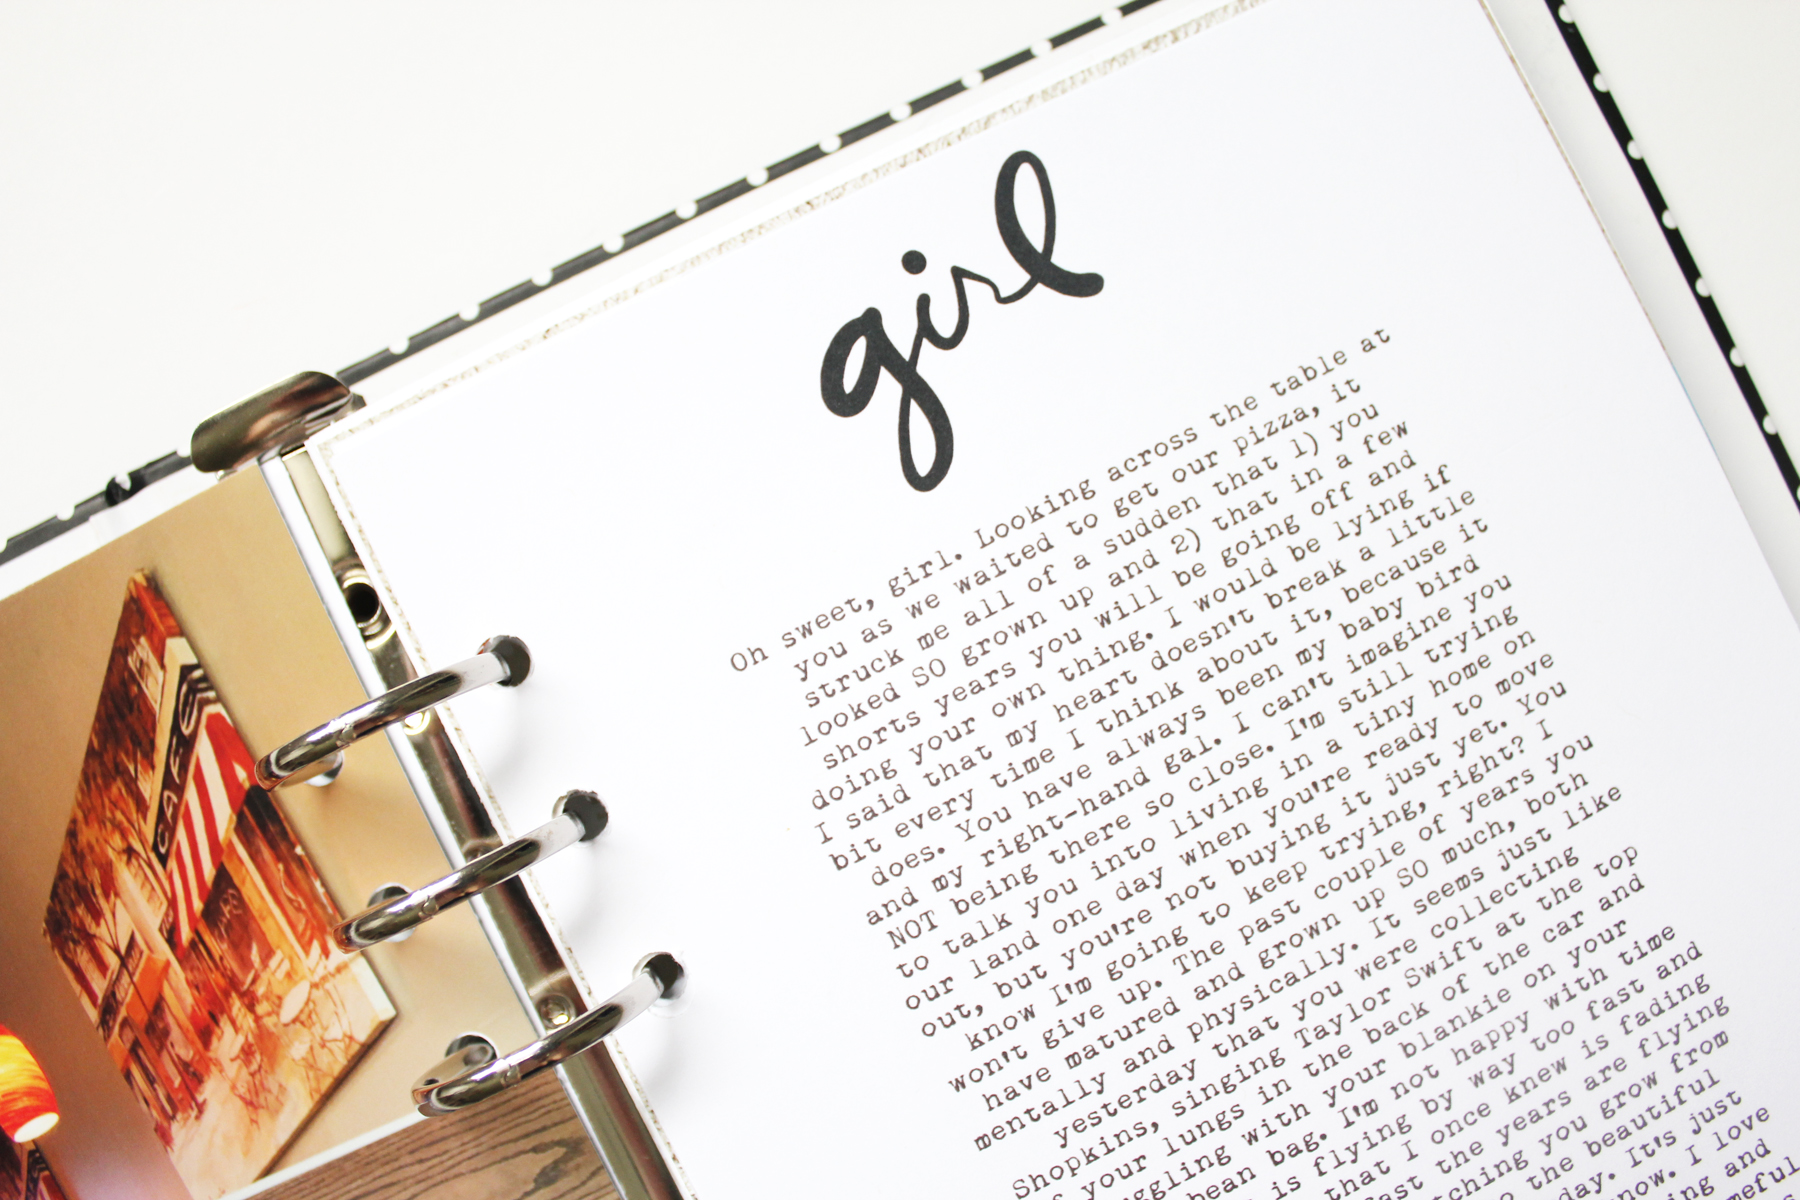 girl
Oh sweet, girl. Looking across the table at
you as we waited to get our pizza, it
struck me all of a sudden that 1) you
looked SO grown up and 2) that in a few
shorts years you will be going off and
doing your own thing. I would be lying if
I said that my heart doesn't break a little
bit every time I think about it, because it
does. You have always been my baby bird
and my right-hand gal. I can't imagine you
NOT being there so close. I'm still trying
to talk you into living in a tiny home on
our land one day when you're ready to move
out, but you're not buying it just yet. You
know I'm going to keep trying, right? I
won't give up. The past couple of years you
have matured and grown up SO much, both
mentally and physically. It seems just like
yesterday that you were collecting
Shopkins, singing Taylor Swift at the top
your lungs in the back of the car and
with your blankie on your
bean bag. I'm not happy with time
is flying by way too fast and
that I once knew is fading
the years are flying
you grow from
the beautiful
It's just
I love
and
CAFE